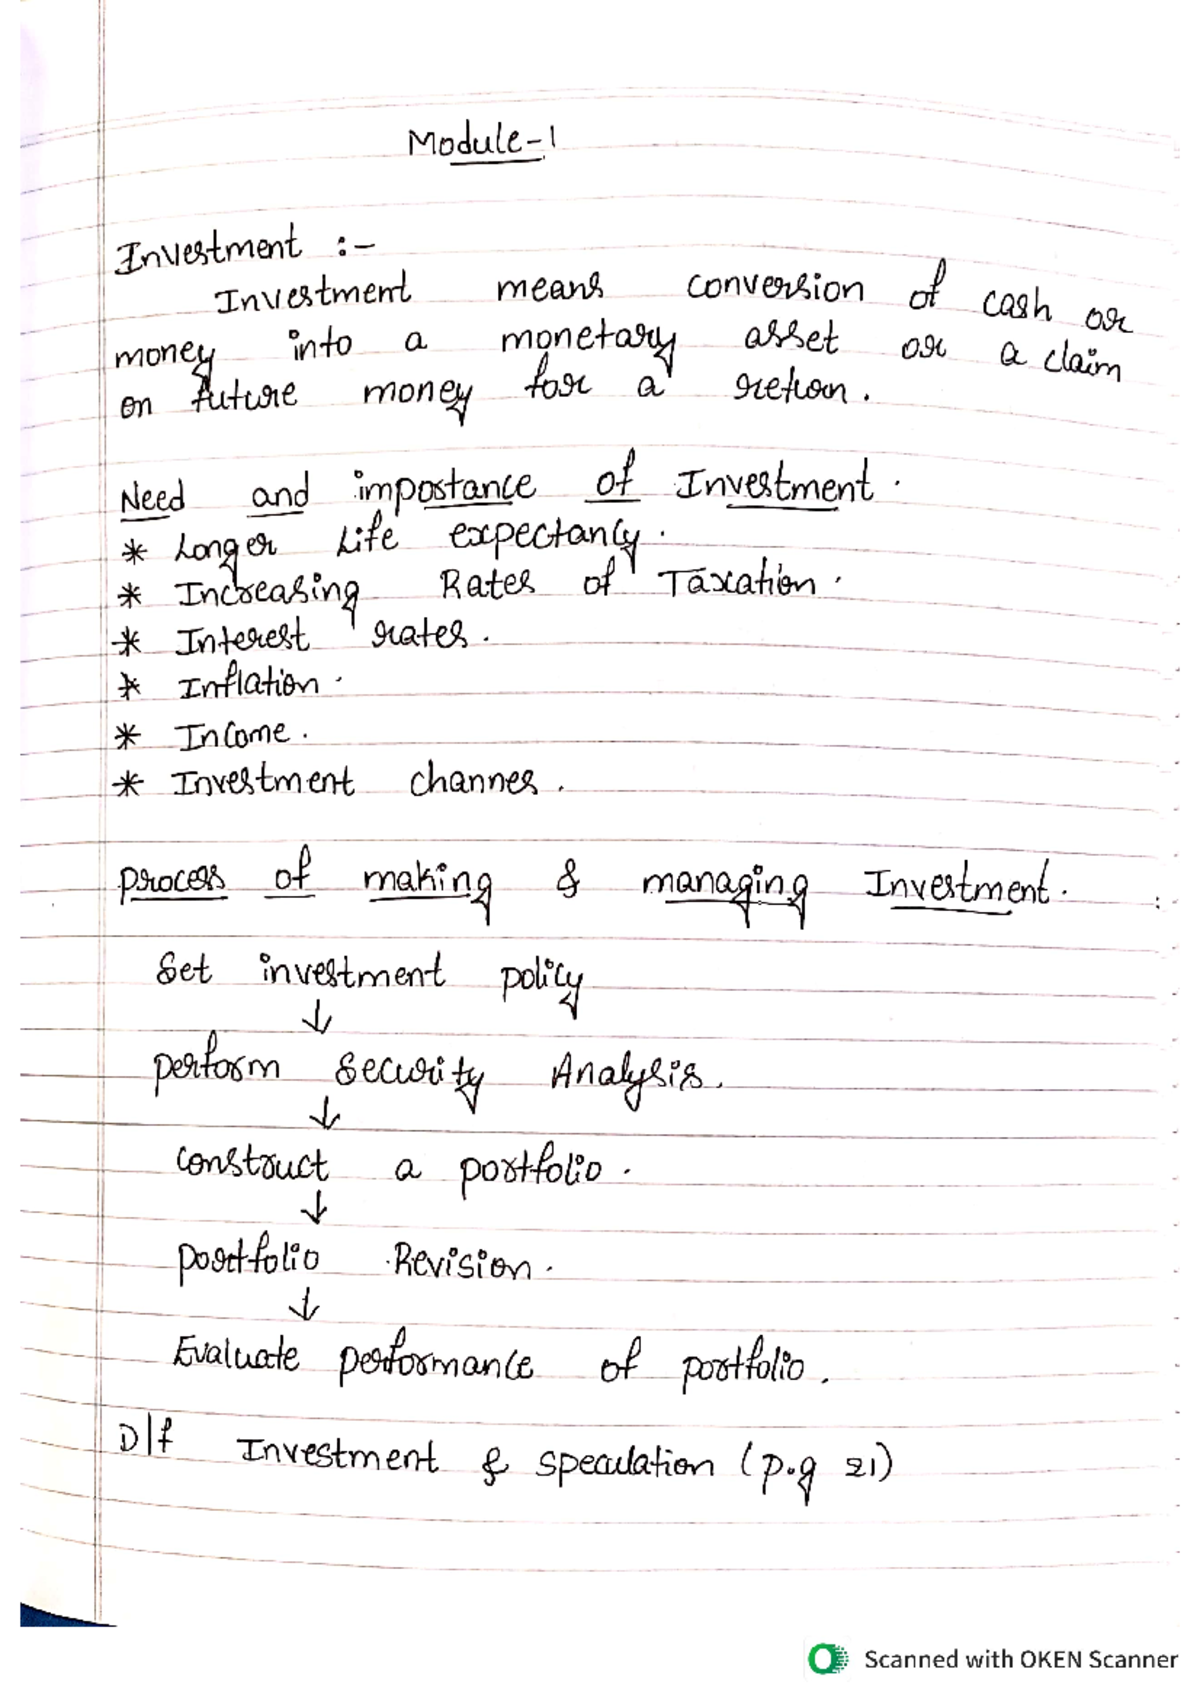 Module-1
Investment :-
Investment means conversion of cash or
money into a monetary asset or a claim
on future money for a return.
Need and importance of Investment.
* Longer Life expectancy.
* Increasing Rates of Taxation.
* Interest rates.
* Inflation.
* Income.
* Investment channes.
process of making & managing Investment.
Set investment policy
↓
perform Security Analysis.
↓
construct a portfolio.
↓
portfolio Revision.
↓
Evaluate performance of portfolio.
D|f Investment & speculation (p.g 21)
Scanned with OKEN Scanner